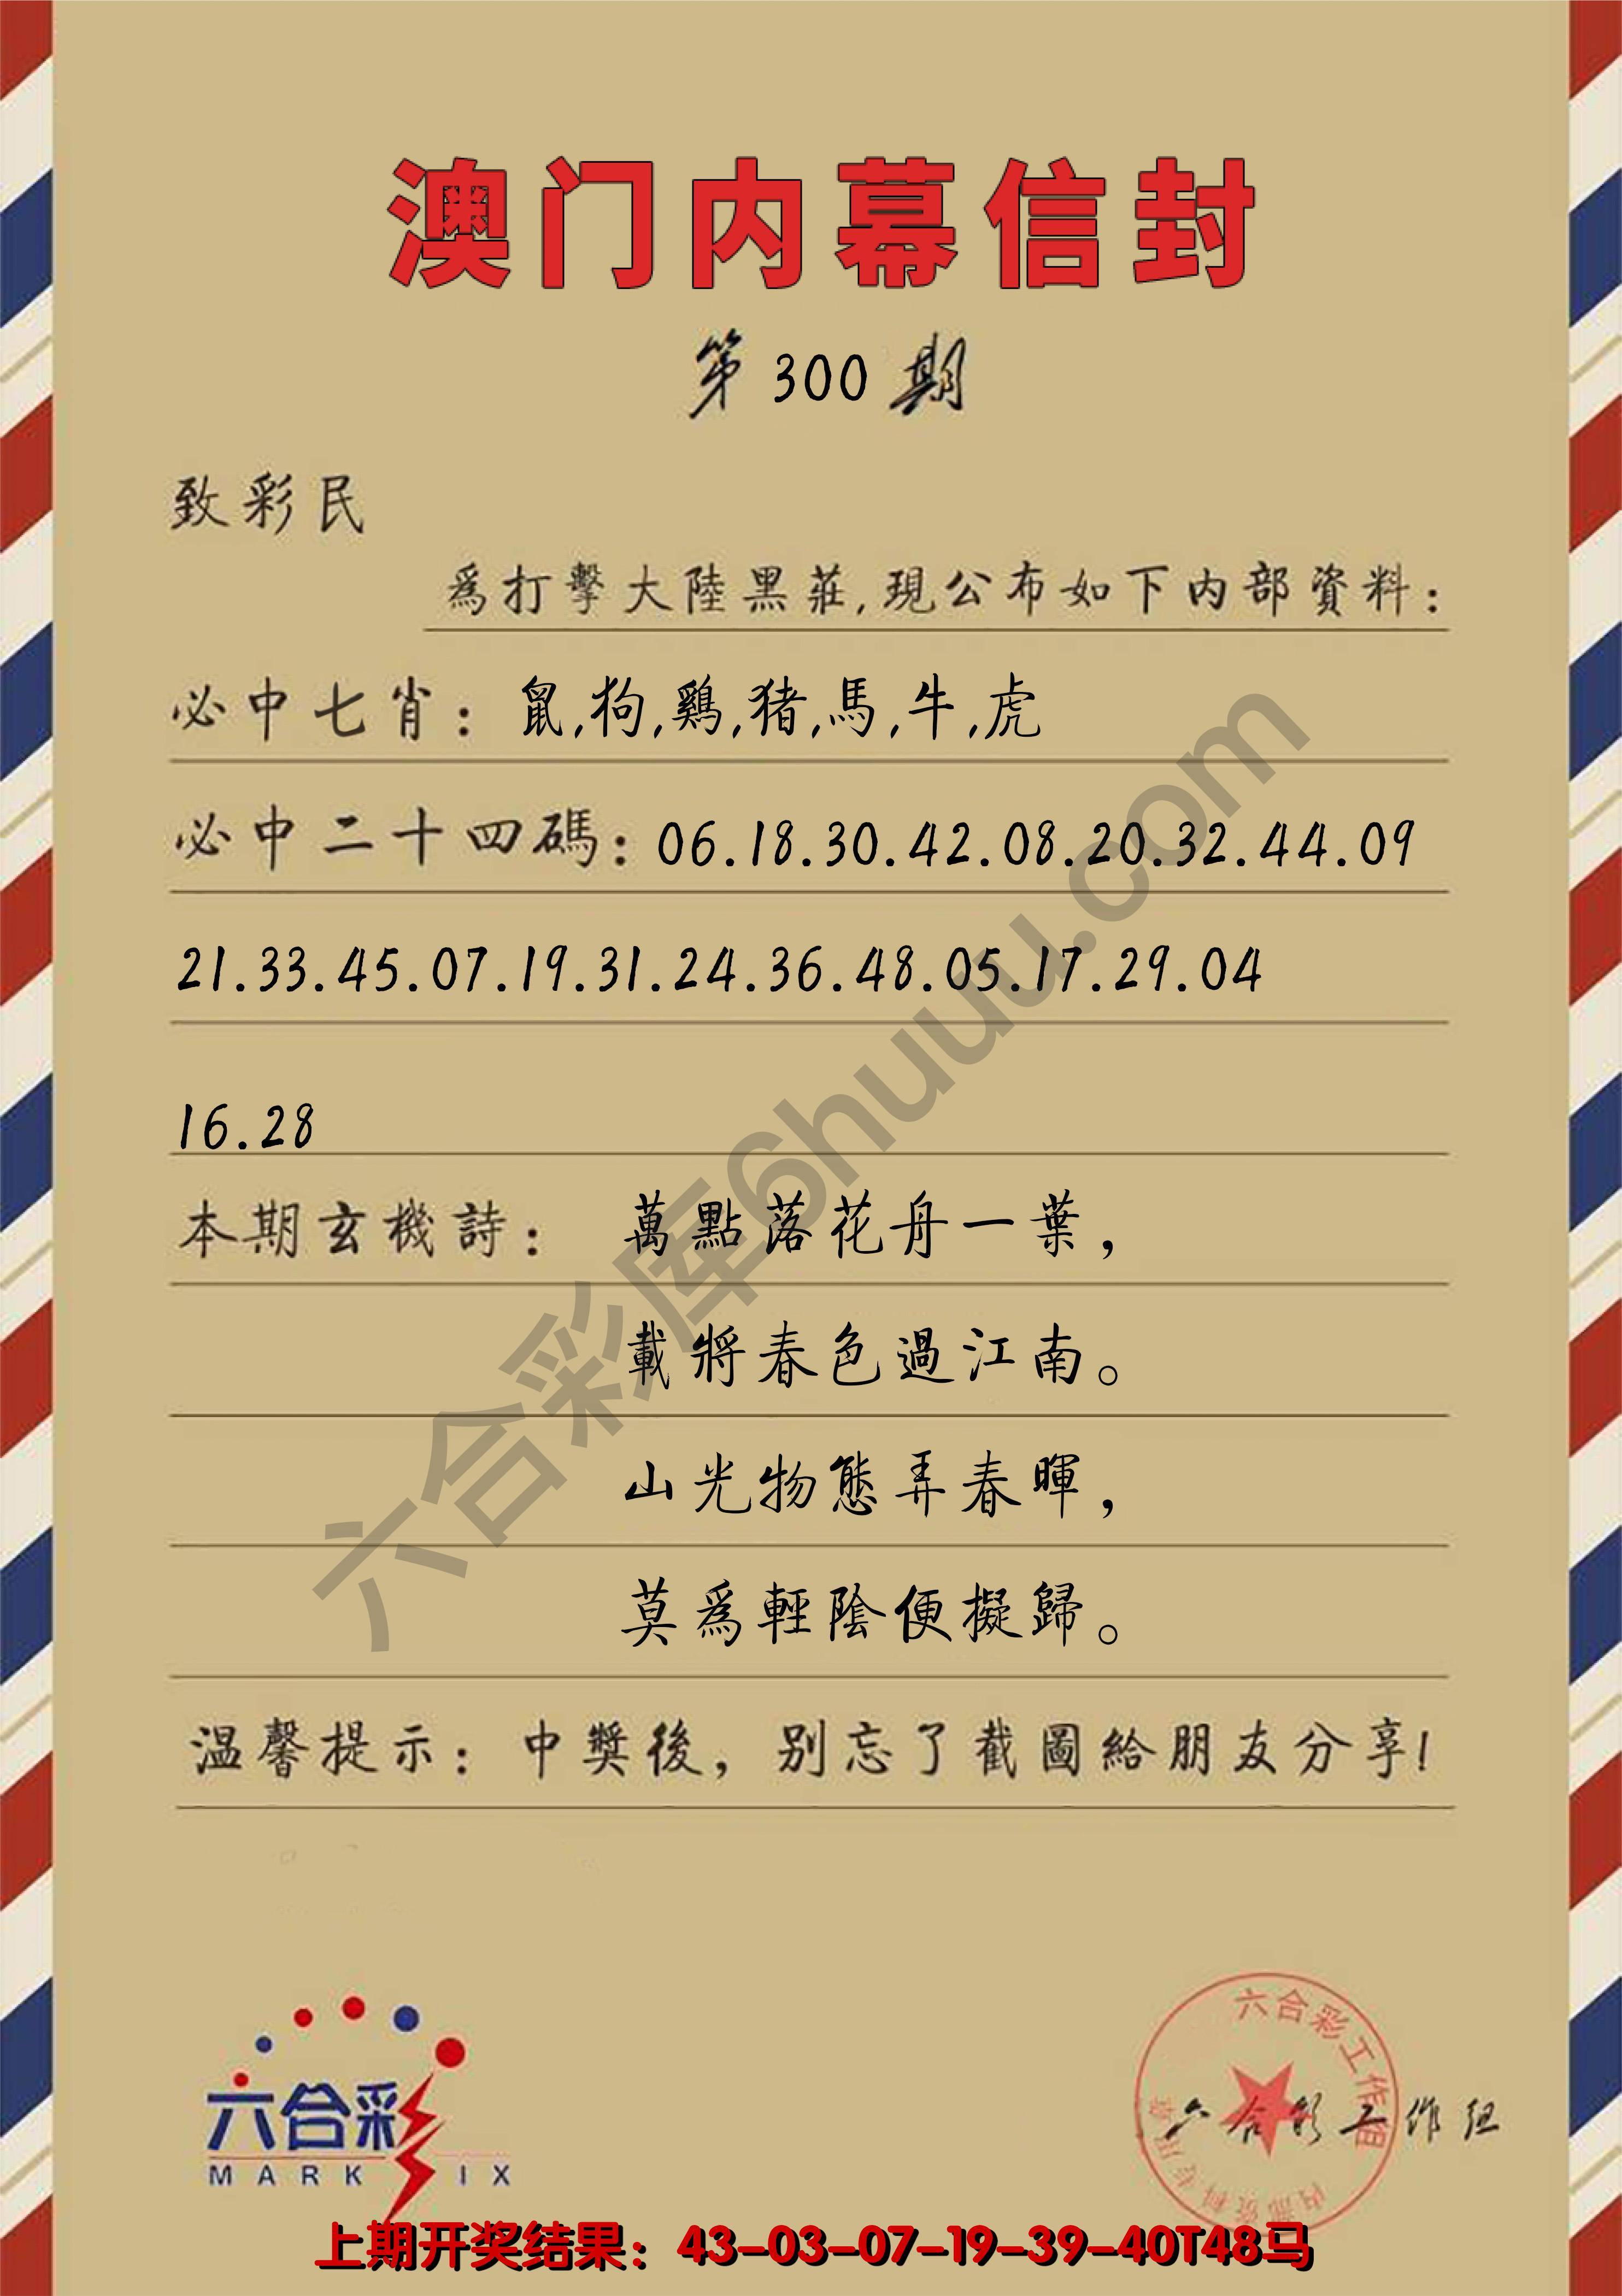 澳门内幕信封
第300期
致彩民
為打擊大陸黑莊,現公布如下内部資料:
必中七肖: 鼠,狗,鷄,猪,馬,牛,虎
必中二十四碼: 06.18.30.42.08.20.32.44.09
21.33.45.07.19.31.24.36.48.05.17.29.04
16.28
本期玄機詩: 萬點落花舟一葉,
載將春色過江南。
山光物態弄春暉,
莫爲輕陰便擬歸。
温馨提示: 中獎後, 别忘了截圖給朋友分享!
六合彩库6huuu.com
六合彩
MARK IX
六合彩工作组
内部资料专用章
六合彩工作组
上期开奖结果: 43-03-07-19-39-40T48马